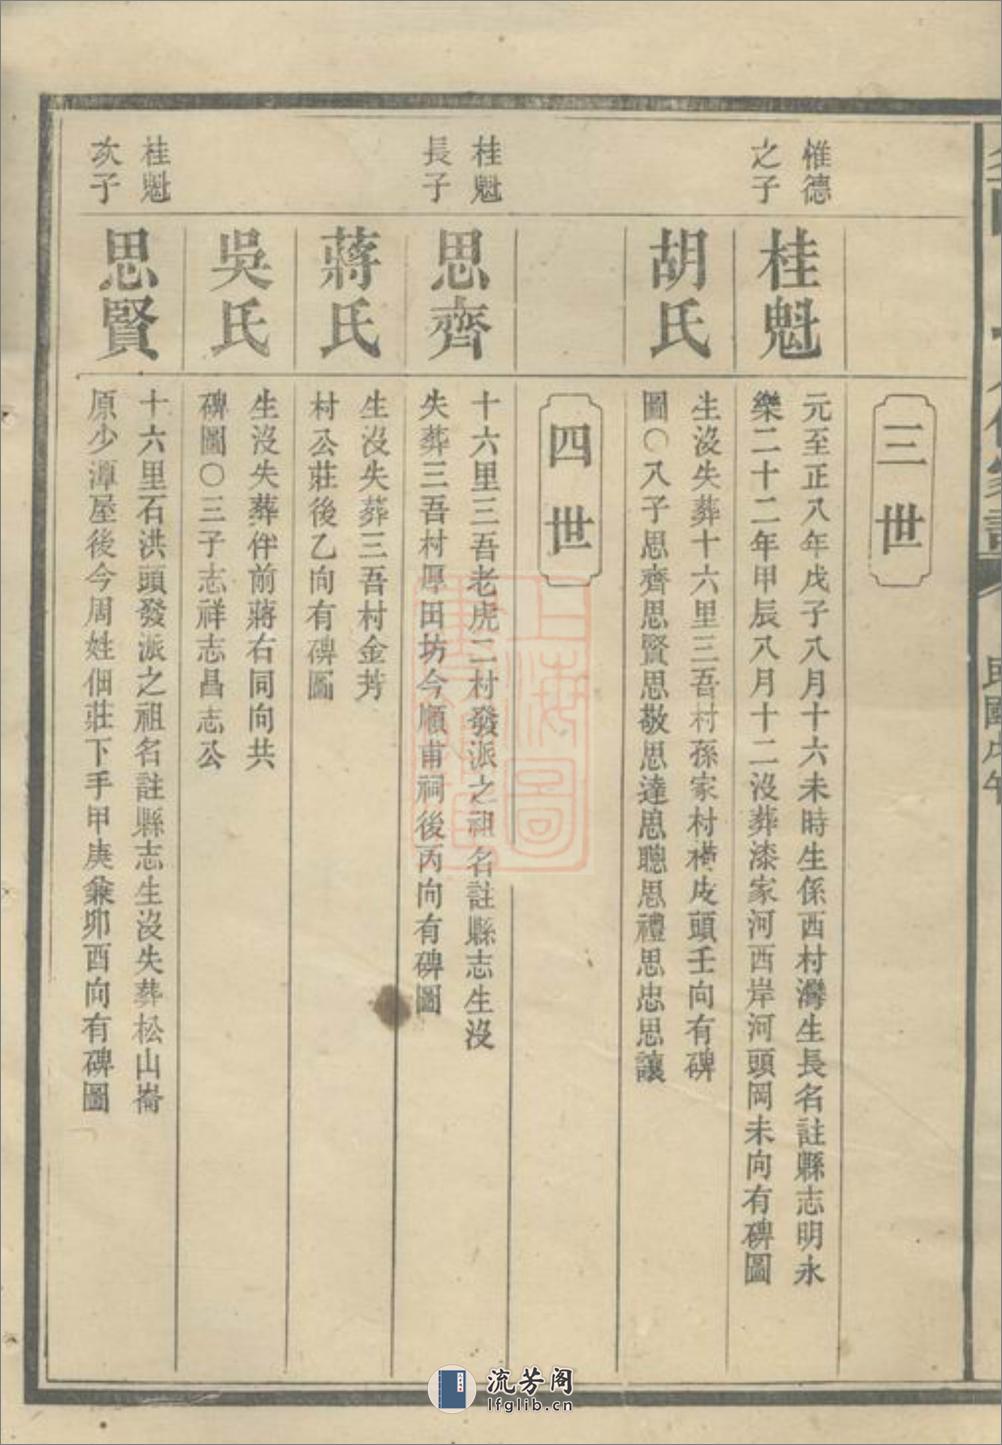 民國戊午
三世
惟德
之子
桂魁
元至正八年戊子八月十六未時生係西村灣生長名註縣志明永
樂二十二年甲辰八月十二沒葬漆家河西岸河頭岡未向有碑圖
胡氏
生沒失葬十六里三吾村孫家村橫皮頭壬向有碑
圖○八子思齊思賢思敬思達思聰思禮思忠思讓
四世
桂魁
長子
思齊
十六里三吾老虎二村發派之祖名註縣志生沒
失葬三吾村厚田坊今順甫祠後丙向有碑圖
蔣氏
生沒失葬三吾村金芳
村公莊後乙向有碑圖
吳氏
生沒失葬伴前蔣右同向共
碑圖○三子志祥志昌志公
桂魁
次子
思賢
十六里石洪頭發派之祖名註縣志生沒失葬松山崙
原少潭屋後今周姓佃莊下手甲庚兼卯酉向有碑圖
上海圖
書館藏
流芳阁
lfglib.cn